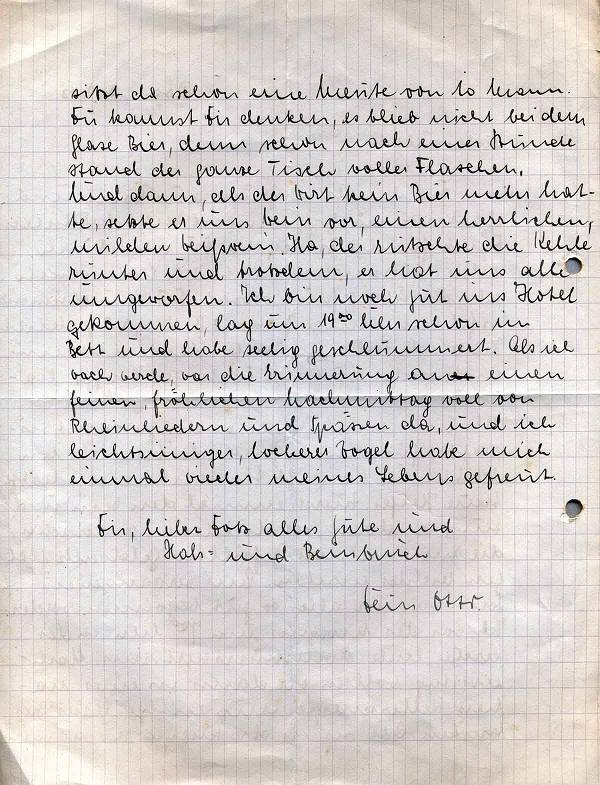 sitzt da schon eine Meute von 10 Mann.
Du kannst Dir denken, es blieb nicht bei dem
Glase Bier, denn schon nach einer Stunde
stand der ganze Tisch voller Flaschen.
Und dann, als der Wirt kein Bier mehr hat-
te, setzte er uns Wein vor, einen herrlichen,
milden Weißwein. Ha, der rutschte die Kehle
runter und trotzdem, er hat uns alle
umgeworfen. Ich bin noch gut ins Hotel
gekommen, lag um 19⁰⁰ Uhr schon im
Bett und habe seelig geschlummert. Als ich
wach werde, war die Erinnerung an einen
feinen, fröhlichen Nachmittag voll von
Rheinliedern und Spässen da, und ich
leichtsinniger, lockerer Vogel habe mich
einmal wieder meines Lebens gefreut.
Dir, lieber alles Gute und
Hals- und Beinbruch
Dein Otto.